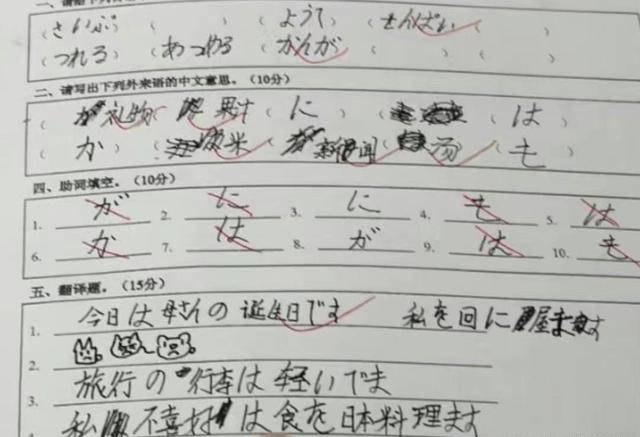 (さいふ ( ) (ようて ) (せんぱい )
(つれる ) (あつめる (かんが ) ( ) ( )
二、请写出下列外来语的中文意思。(10分)
( 礼物 果汁 ( に ) ( ) ( は
( か ) ( 米 ( 新闻 ( 汤 ) ( も )
四、助词填空。(10分)
1. が 2. に 3. に 4. も 5. は
6. か 7. は 8. が 9. は 10. も
五、翻译题。(15分)
1. 今日は母さんの誕生日です 私を回に屋ます
2.
3. 旅行の行李は軽いでま
私 不喜好 は食を日本料理ます